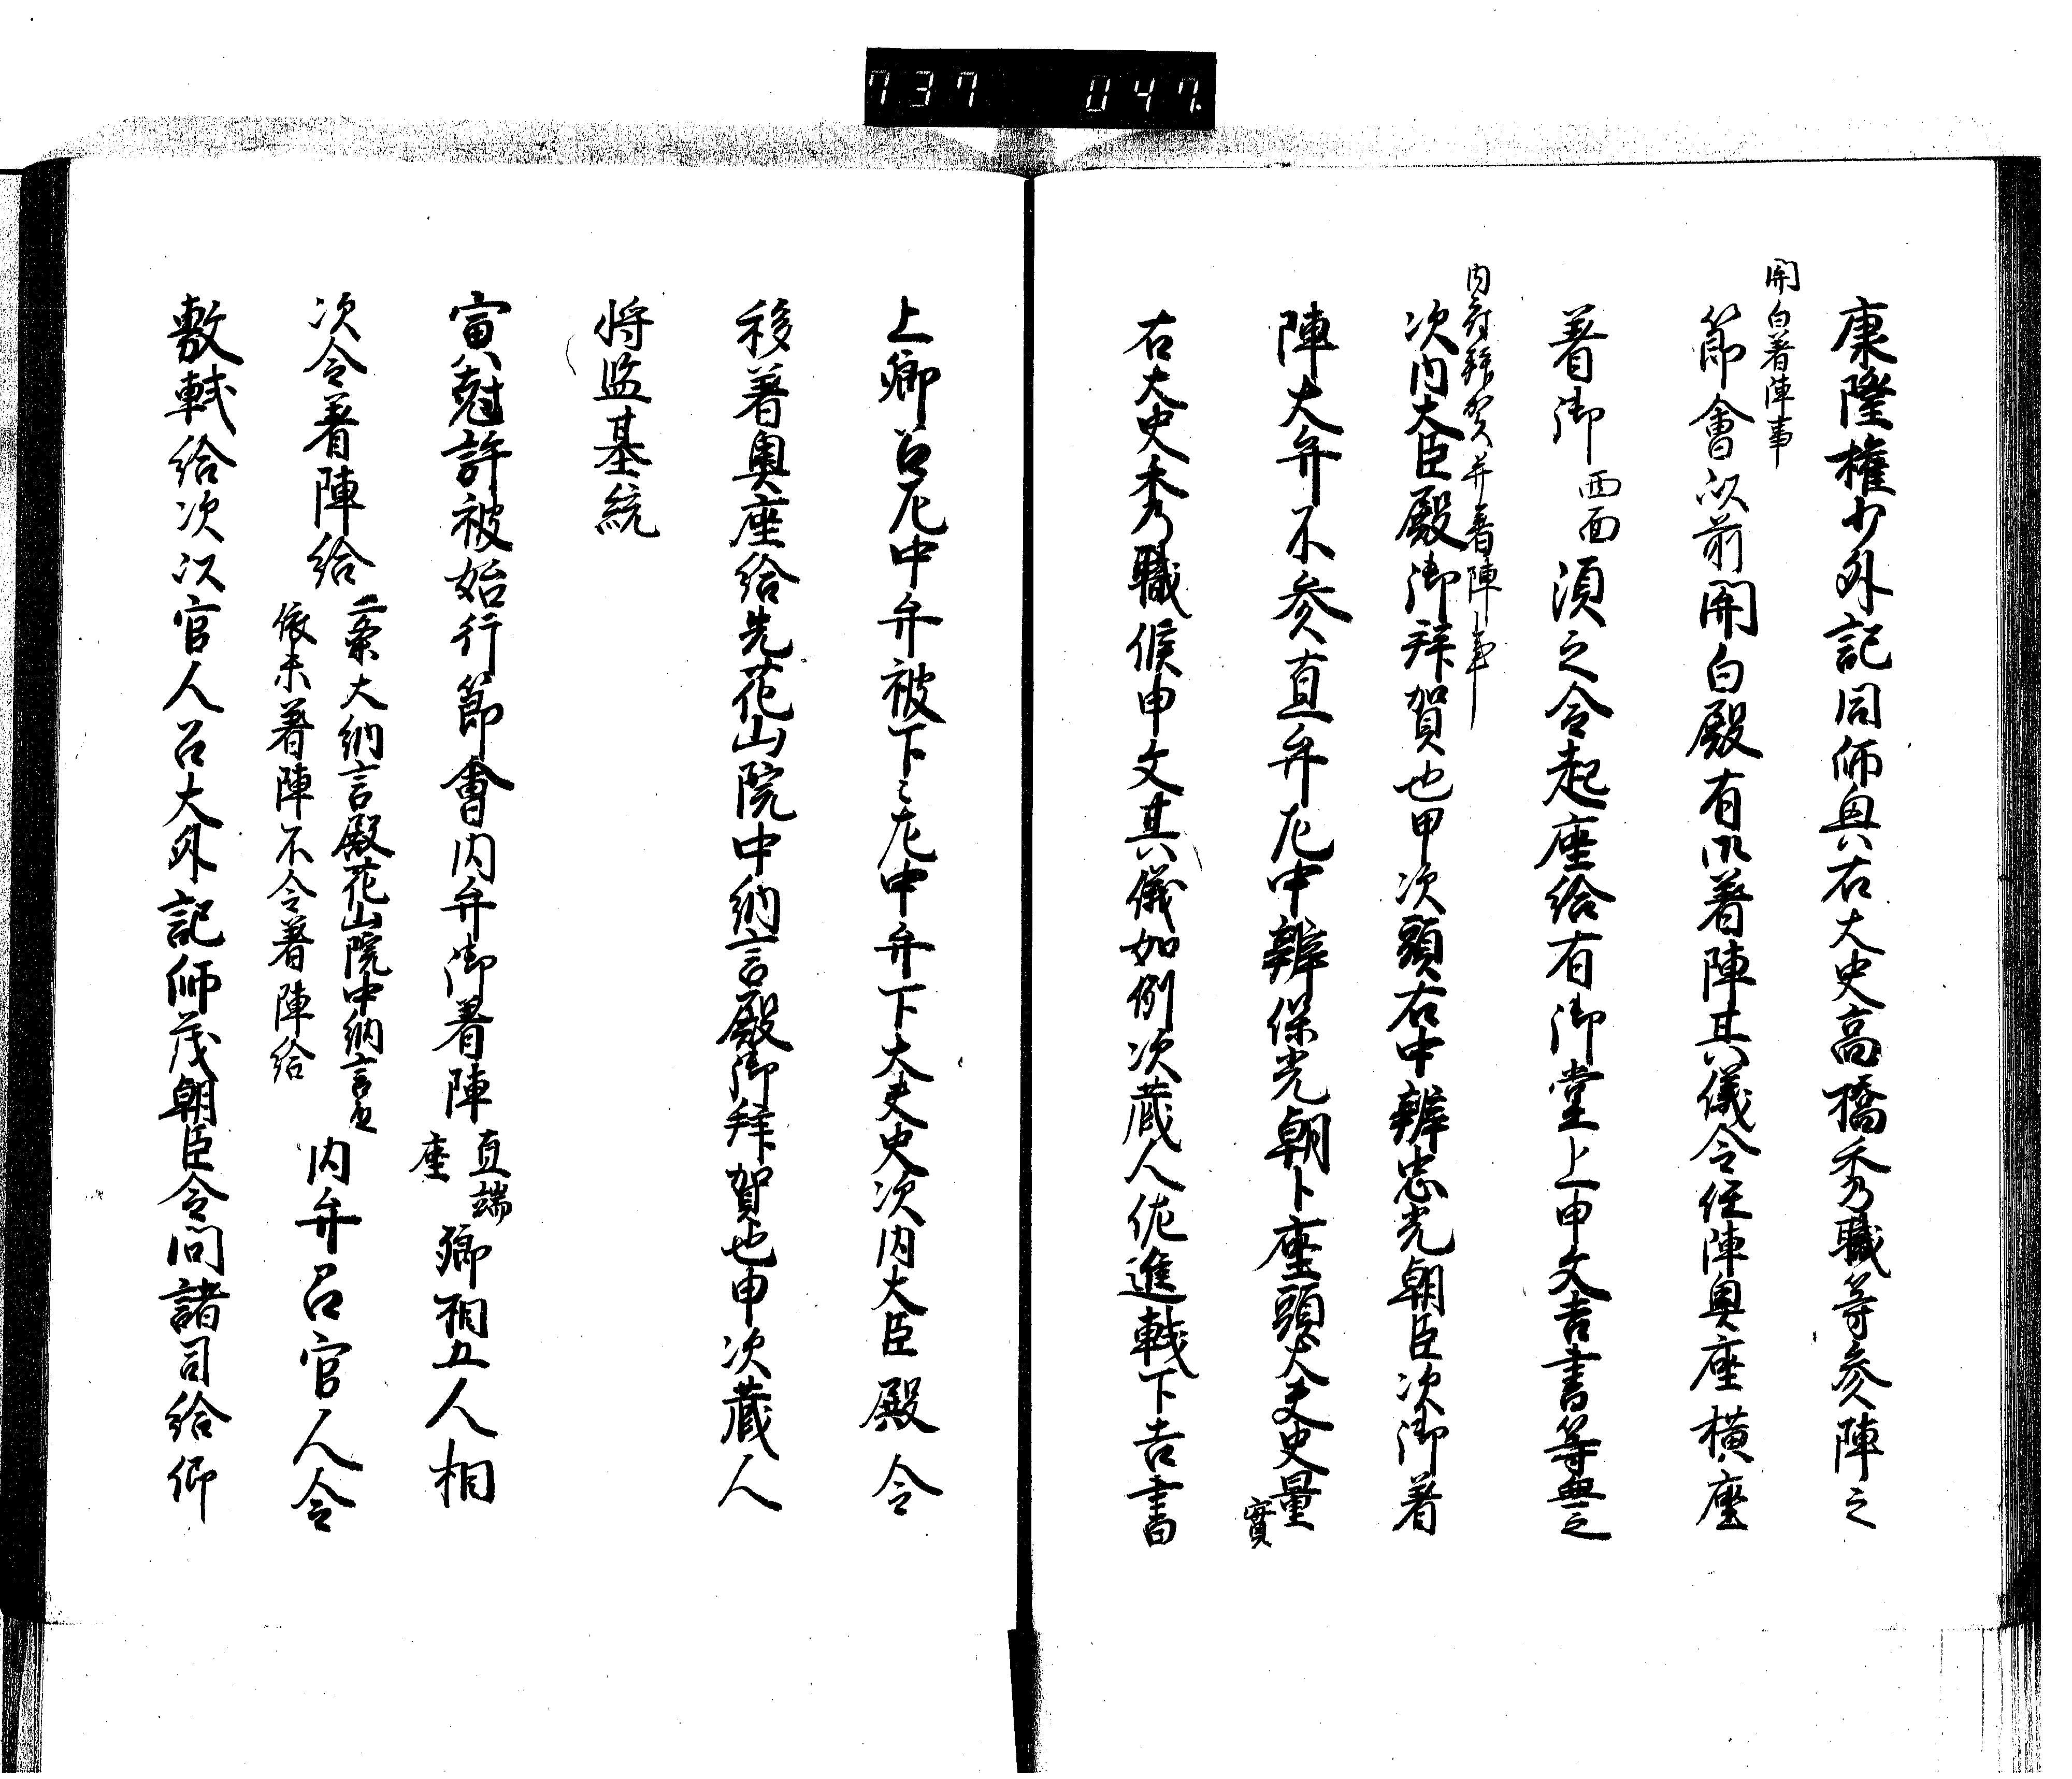 737 047
康隆権少外記同師興右大史高橋秀職等参陣之
開白著陣事
節會以前開白殿有御著陣其儀令経陣奥座横座
著御西面須之令起座給有御堂上申文吉書等無之
内府拝賀并著陣事
次内大臣殿御拝賀也申次頭右中辨忠光朝臣次御著
陣大弁不参直弁左中辨保光朝卜座頭大夫史量
實
右大史秀職候申文其儀如例次蔵人佐進軾下吉書
上卿召左中弁被下之左中弁下大夫史次内大臣殿令
移著奥座給先花山院中納言殿御拝賀也申次蔵人
将監基統
寅剋許被始行節會内弁御著陣直端座卿相五人相
次令著陣給二条大納言殿花山院中納言已依未著陣不令著陣給内弁召官人令
敷軾給次以官人召大外記師茂朝臣令問諸司給仰